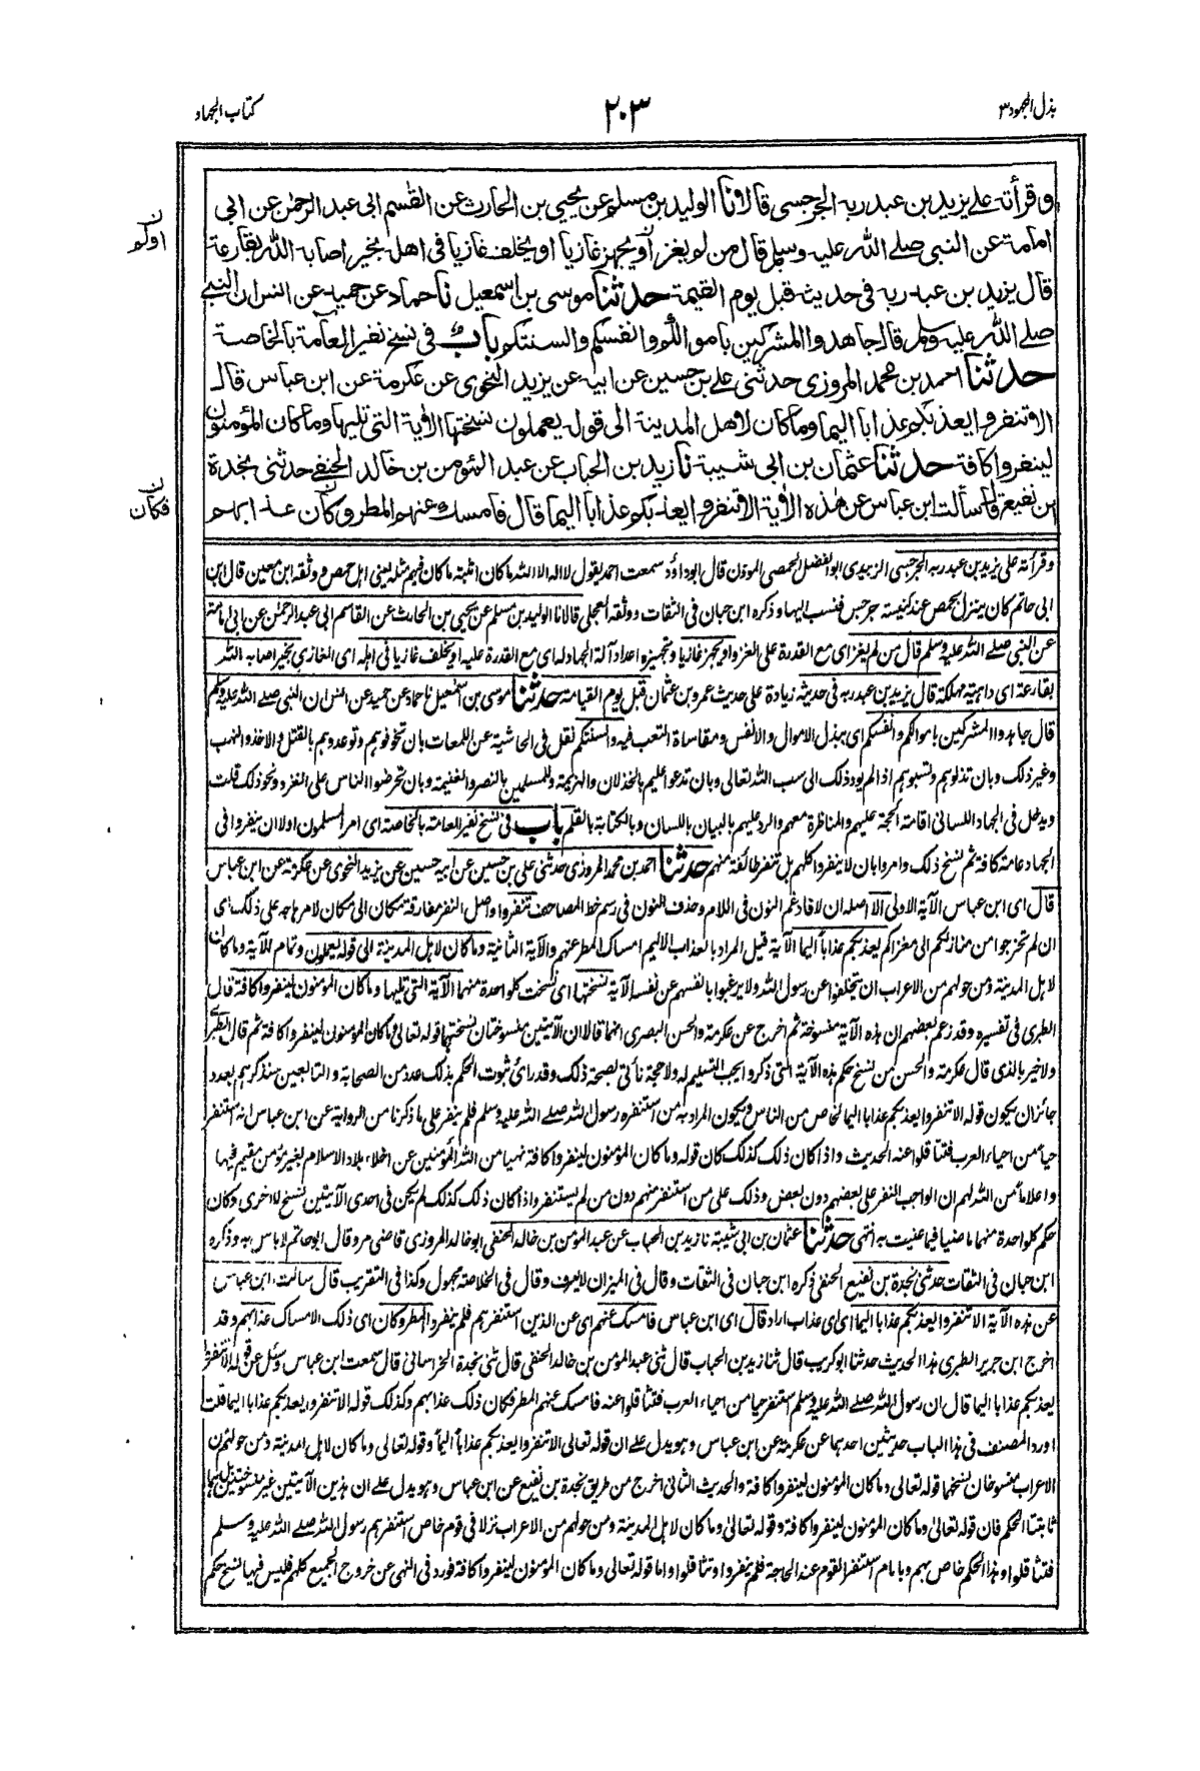 بذل المجهود ٣
٢٠٣
كتاب الجهاد
وقرأته على يزيد بن عبد ربه الجرجسى قالا نا الوليد بن مسلم عن يحيى بن الحارث عن القسم ابى عبد الرحمن عن ابى
امامة عن النبى صلى الله عليه وسلم قال من لم يغز او يجهز غازيا او يخلف غازيا فى اهله بخير اصابه الله بقارعة
او لم
قال يزيد بن عبد ربه فى حديثه قبل يوم القيمة حدثنا موسى بن اسمعيل نا حماد عن حميد عن انس ان النبى
صلى الله عليه وسلم قال جاهدوا المشركين باموالكم وانفسكم والسنتكم باب فى نسخ نفير العامة بالخاصة
حدثنا احمد بن محمد المروزى حدثنى على بن حسين عن ابيه عن يزيد النحوى عن عكرمة عن ابن عباس قال
الا تنفروا يعذبكم عذابا اليما وما كان لاهل المدينة الى قوله يعملون نسختها الاية التى تليها وما كان المؤمنون
لينفروا كافة حدثنا عثمان بن ابى شيبة نا زيد بن الحباب عن عبد المؤمن بن خالد الحنفى حدثنى نجدة
بن نفيع قال سألت ابن عباس عن هذه الاية الا تنفروا يعذبكم عذابا اليما قال فامسك عنهم المطر وكان عذابهم
فكان
وقرأته على يزيد بن عبد ربه الجرجسى الزبيدى ابو الفضل الحمصى المؤذن قال ابو داؤد سمعت احمد يقول لا اله الا الله ما كان اثبته ما كان فيهم مثله يعنى اهل حمص ووثقه ابن معين قال ابن
ابى حاتم كان ينزل بحمص عند كنيسة جرجس فنسب اليها وذكره ابن حبان فى الثقات ووثقه العجلى قالا نا الوليد بن مسلم عن يحيى بن الحارث عن القاسم ابى عبد الرحمن عن ابى امامة
عن النبى صلى الله عليه وسلم قال من لم يغز اى مع القدرة على الغزو او يجهز غازيا وتجهيزه اعداد آلة الجهاد له اى مع القدرة عليه او يخلف غازيا فى اهله اى الغازى بخير اصابه الله
بقارعة اى داهية مهلكة قال يزيد بن عبد ربه فى حديثه زيادة على حديث عمرو بن عثمان قبل يوم القيامة حدثنا موسى بن اسمعيل نا حماد عن حميد عن انس ان النبى صلى الله عليه وسلم
قال جاهدوا المشركين باموالكم وانفسكم اى ببذل الاموال والانفس ومقاساة التعب فيه والسنتكم نقل فى الحاشية عن اللمعات بان تخوفوهم وتوعدوهم بالقتل والاخذ والنهب
وغير ذلك وبان تذلوهم وتسبوهم اذا لم يؤد ذلك الى سب الله تعالى وبان تدعوا عليهم بالخذلان والهزيمة وللمسلمين بالنصر والغنيمة وبان تحرضوا الناس على الغزو ونحو ذلك قلت
ويدخل فى الجهاد اللسانى اقامة الحجة عليهم والمناظرة معهم والرد عليهم بالبيان باللسان وبالكتابة بالقلم باب فى نسخ نفير العامة بالخاصة اى امر المسلمون اولا ان ينفروا فى
الجهاد عامة كافة ثم نسخ ذلك وامروا بان لا ينفروا كلهم بل تنفر طائفة منهم حدثنا احمد بن محمد المروزى حدثنى على بن حسين عن ابيه حسين عن يزيد النحوى عن عكرمة عن ابن عباس
قال اى ابن عباس الآية الاولى الا اصله ان لا فادغم النون فى اللام وحذف النون فى رسم خط المصاحف تنفروا واصل النفر مفارقة مكان الى مكان لامر هاجه على ذلك اى
ان لم تخرجوا من منازلكم الى مغزاكم يعذبكم عذابا اليما الآية قيل المراد بالعذاب الاليم امساك المطر عنهم والآية الثانية وما كان لاهل المدينة الى قوله يعملون وتمام الآية وما كان
لاهل المدينة ومن حولهم من الاعراب ان يتخلفوا عن رسول الله ولا يرغبوا بانفسهم عن نفسه الآية نسختها اى نسخت كلا واحدة منهما الآية التى تليها وما كان المؤمنون لينفروا كافة قال
الطبرى فى تفسيره وقد زعم بعضهم ان هذه الآية منسوخة ثم اخرج عن عكرمة والحسن البصرى انهما قالا ان الآيتين منسوختان نسختها قوله تعالى وما كان المؤمنون لينفروا كافة ثم قال الطبرى
ولا خبر بالذى قال عكرمة والحسن من نسخ حكم هذه الآية التى ذكروا يجب التسليم له ولا حجة تأتى بصحة ذلك وقد رأى ثبوت الحكم بذلك عدد من الصحابة والتابعين سنذكرهم بعد
جائز ان يكون قوله الا تنفروا يعذبكم عذابا اليما لخاص من الناس ويكون المراد به من استنفره رسول الله صلى الله عليه وسلم فلم ينفر على ما ذكرنا من الرواية عن ابن عباس انه استنفر
حيا من احياء العرب فتثاقلوا عنه الحديث واذا كان ذلك كذلك كان قوله وما كان المؤمنون لينفروا كافة نهيا من الله المؤمنين عن اخلاء بلاد الاسلام بغير مؤمن مقيم فيها
واعلاما من الله لهم ان الواجب النفر على بعضهم دون بعض وذلك على من استنفر منهم دون من لم يستنفر واذا كان ذلك كذلك لم يكن فى احدى الآيتين نسخ للاخرى وكان
حكم كل واحدة منهما ماضيا فيما عنيت به انتهى حدثنا عثمان بن ابى شيبة نا زيد بن الحباب عن عبد المؤمن بن خالد الحنفى ابو خالد المروزى قاضى مرو قال ابو حاتم لا باس به وذكره
ابن حبان فى الثقات حدثنى نجدة بن نفيع الحنفى ذكره ابن حبان فى الثقات وقال فى الميزان لا يعرف وقال فى الخلاصة مجهول وكذا فى التقريب قال سألت ابن عباس
عن هذه الآية الا تنفروا يعذبكم عذابا اليما اى اى عذاب اراد قال اى ابن عباس فامسك عنهم اى عن الذين استنفرهم فلم ينفروا المطر وكان اى ذلك الامساك عذابهم وقد
اخرج ابن جرير الطبرى هذا الحديث حدثنا ابو كريب قال ثنا زيد بن الحباب قال ثنى عبد المؤمن بن خالد الحنفى قال ثنى نجدة الخراسانى قال سمعت ابن عباس وسئل عن قوله الا تنفروا
يعذبكم عذابا اليما قال ان رسول الله صلى الله عليه وسلم استنفر حيا من احياء العرب فتثاقلوا عنه فامسك عنهم المطر فكان ذلك عذابهم وكذلك قوله الا تنفروا يعذبكم عذابا اليما قلت
اورد المصنف فى هذا الباب حديثين احدهما عن عكرمة عن ابن عباس وهو يدل على ان قوله تعالى الا تنفروا يعذبكم عذابا اليما وقوله تعالى وما كان لاهل المدينة ومن حولهم من
الاعراب منسوخان نسخهما قوله تعالى وما كان المؤمنون لينفروا كافة والحديث الثانى اخرج من طريق نجدة بن نفيع عن ابن عباس وهو يدل على ان هذين الآيتين غير منسوختين بل هما
ثابتتا الحكم فان قوله تعالى وما كان المؤمنون لينفروا كافة وقوله تعالى وما كان لاهل المدينة ومن حولهم من الاعراب نزلا فى قوم خاص استنفرهم رسول الله صلى الله عليه وسلم
فتثاقلوا وهذا الحكم خاص بهم وبامام استنفر القوم عند الحاجة فلم ينفروا وتثاقلوا واما قوله تعالى وما كان المؤمنون لينفروا كافة فورد فى النهى عن خروج الجميع كلهم فليس فيها نسخ حكم